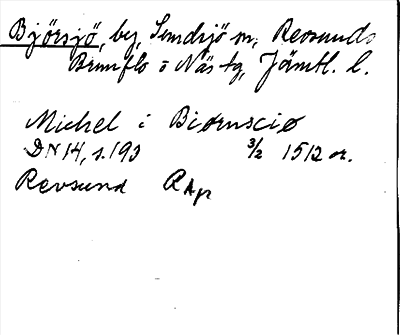 Björsjö, by, Sundsjö sn, Revsunds
Brunflo o Näs tg, Jämtl. l.
Michel i Biørnsciø
DN 14, s. 193 3/2 1512 or.
Revsund RAp